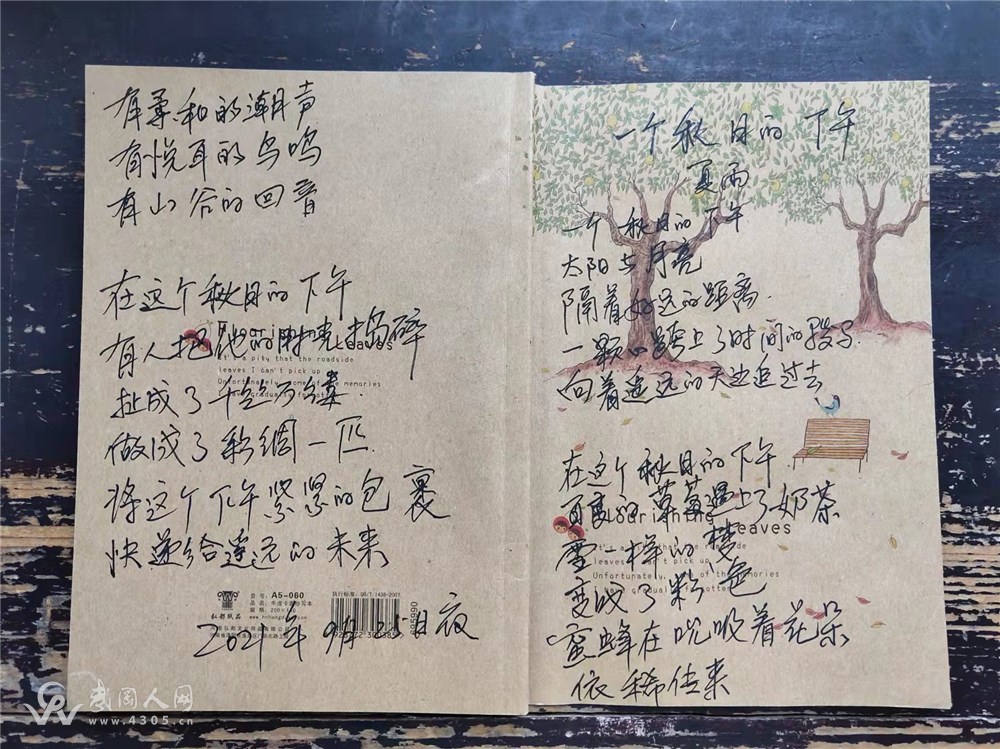 一个秋日的下午
夏雨
一个秋日的下午
太阳与月亮
隔着好远的距离
一颗心踏上了时间的骏马
向着遥远的天边追过去
在这个秋日的下午
百变的草莓遇上了奶茶
雪一样的梦
变成了粉色
蜜蜂在吮吸着花朵
依稀传来
Flourishing Leaves
leaves I can't pick up
Unfortunately, some of the memories
have gradually forgotten
有柔和的潮声
有悦耳的鸟鸣
有山谷的回音
在这个秋日的下午
有人把他的时光捣碎
扯成了千丝万缕
做成了彩绸一匹
将这个下午紧紧的包裹
快递给遥远的未来
It's a pity that the roadside
leaves I can't pick up
Unfortunately, some of the memories
型号: A5-060
执行标准: QB/T 1438-2007
弘彩纸品
2021年9月25日夜
武冈人网
www.4305.cn